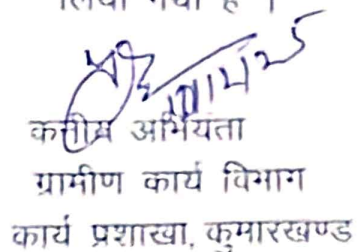 लिया गया है ।
कनीय अभियंता
ग्रामीण कार्य विभाग
कार्य प्रशाखा, कुमारखण्ड